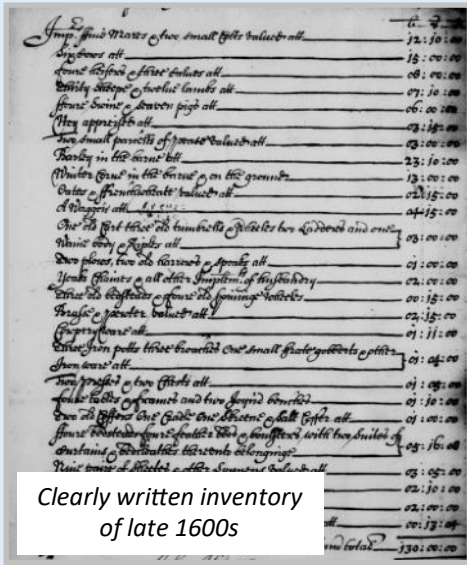 li s d
Imprs ffive Mares & two small Colts valued att 12:10:00
Six Cows att 15:00:00
foure heifers & three calves att 08:00:00
thirty sheepe & twelve lambs att 07:10:00
ffoure Swine & seaven pigs att 06:00:00
Hey appreised att 03:15:00
Two small parcells of valued att 03:00:00
Barley in the barne att 23:10:00
Winter Corne in the barne & on the ground 13:00:00
Oates & valued att 02:15:00
A Waggon att 04:15:00
One old Cart three old tumbrells & wheeles two Ladders and one
Waine body & att 03:00:00
Two plows, two old harrows & att 01:00:00
Chaines & all other Implemts. of husbandry 02:00:00
three old bedsteads & foure old spinninge wheeles 00:15:00
Brasse & Pewter valued att 02:15:00
Coopery ware att 01:11:00
Three Iron potts three One small grate & other
Iron ware att 01:04:00
two presses & two Chests att 01:05:00
foure tables & frames and two Joyn'd benches 01:10:00
two old Coffers One One & Coffer att 01:00:00
ffoure bedsteads foure feather beds & boulsters with two suites of
Curtains & bedcloathes thereunto belonginge 05:16:08
Nine paire of sheetes & other Lynnens valued att 03:05:00
02:10:00
02:00:00
att 00:13:04
and total 130:00:00
Clearly written inventory
of late 1600s